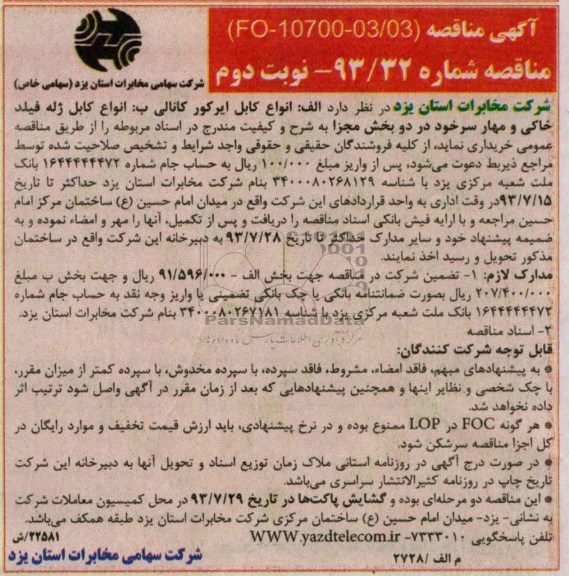 آگهی مناقصه (FO-10700-03/03)
مناقصه شماره ۹۳/۳۲- نوبت دوم
شرکت سهامی مخابرات استان یزد (سهامی خاص)
شرکت مخابرات استان یزد در نظر دارد الف: انواع کابل ایرکور کانالی ب: انواع کابل ژله فیلد
خاکی و مهار سرخود در دو بخش مجزا به شرح و کیفیت مندرج در اسناد مربوطه را از طریق مناقصه
عمومی خریداری نماید، از کلیه فروشندگان حقیقی و حقوقی واجد شرایط و تشخیص صلاحیت شده توسط
مراجع ذیربط دعوت می‌شود، پس از واریز مبلغ ۱۰۰/۰۰۰ ریال به حساب جام شماره ۱۶۴۴۴۴۴۴۷۲ بانک
ملت شعبه مرکزی یزد با شناسه ۳۴۰۰۰۸۰۲۶۸۱۲۹ بنام شرکت مخابرات استان یزد حداکثر تا تاریخ
۹۳/۷/۱۵در وقت اداری به واحد قراردادهای این شرکت واقع در میدان امام حسین (ع) ساختمان مرکز امام
حسین مراجعه و با ارایه فیش بانکی اسناد مناقصه را دریافت و پس از تکمیل، آنها را مهر و امضاء نموده و به
ضمیمه پیشنهاد خود و سایر مدارک حداکثر تا تاریخ ۹۳/۷/۲۸ به دبیرخانه این شرکت واقع در ساختمان
مذکور تحویل و رسید اخذ نمایند.
مدارک لازم: ۱- تضمین شرکت در مناقصه جهت بخش الف - ۹۱/۵۹۶/۰۰۰ ریال و جهت بخش ب مبلغ
۲۰۷/۴۰۰/۰۰۰ ریال بصورت ضمانتنامه بانکی یا چک بانکی تضمینی یا واریز وجه نقد به حساب جام شماره
۱۶۴۴۴۴۴۴۷۲ بانک ملت شعبه مرکزی یزد با شناسه ۳۴۰۰۰۸۰۲۶۷۱۸۱ بنام شرکت مخابرات استان یزد.
ParsNamadData
۲- اسناد مناقصه
قابل توجه شرکت کنندگان:
* به پیشنهادهای مبهم، فاقد امضاء، مشروط، فاقد سپرده، با سپرده مخدوش، با سپرده کمتر از میزان مقرر،
با چک شخصی و نظایر اینها و همچنین پیشنهادهایی که بعد از زمان مقرر در آگهی واصل شود ترتیب اثر
داده نخواهد شد.
* هر گونه FOC در LOP ممنوع بوده و در نرخ پیشنهادی، باید ارزش قیمت تخفیف و موارد رایگان در
کل اجزا مناقصه سرشکن شود.
* در صورت درج آگهی در روزنامه استانی ملاک زمان توزیع اسناد و تحویل آنها به دبیرخانه این شرکت
تاریخ چاپ در روزنامه کثیرالانتشار سراسری می‌باشد.
* این مناقصه دو مرحله‌ای بوده و گشایش پاکت‌ها در تاریخ ۹۳/۷/۲۹ در محل کمیسیون معاملات شرکت
به نشانی- یزد- میدان امام حسین (ع) ساختمان مرکزی شرکت مخابرات استان یزد طبقه همکف می‌باشد.
تلفن پاسخگویی ۷۲۳۳۰۱۰- WWW.yazdtelecom.ir
۲۲۵۸۱/ش
م الف /۲۷۲۸
شرکت سهامی مخابرات استان یزد